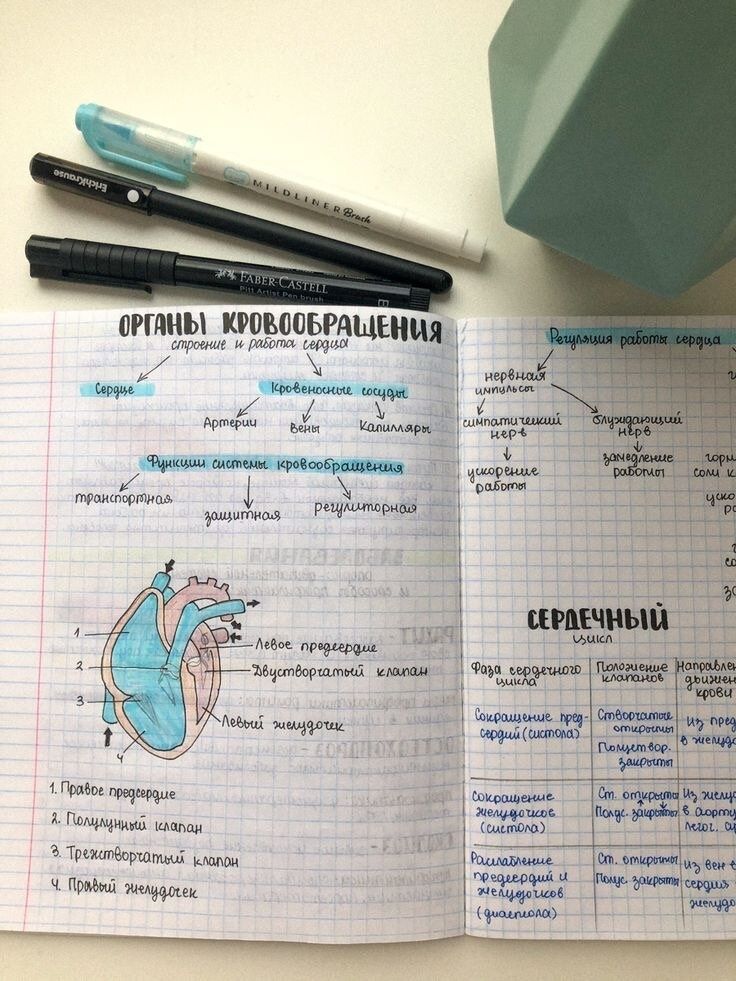 MILDLINER Brush
ErichKrause
FABER-CASTELL
Pitt Artist Pen brush
B
ОРГАНЫ КРОВООБРАЩЕНИЯ
строение и работа сердца
Сердце
Кровеносные сосуды
Артерии
Вены
Капилляры
Функции системы кровообращения
транспортная
защитная
регулиторная
1
2
3
4
Левое предсердие
Двустворчатый клапан
Левый желудочек
1. Правое предсердие
2. Полулунный клапан
3. Трехстворчатый клапан
4. Правый желудочек
Регуляция работы сердца
нервная
импульсы
симпатический
нерв
блуждающий
нерв
ускорение
работы
замедление
работы
горм
соли к
уско
ра
со
за
СЕРДЕЧНЫЙ
ЦИКЛ
Фаза сердечного
цикла
Положение
клапанов
Направлен
движен
крови
Сокращение пред-
сердий (систола)
Створчатые
открыты
Полуствор.
закрыты
Из пред
в желудо
Сокращение
желудочков
(систола)
Ст. открыты
Полус. закрыты
Из желу
в аорту
легоч. ар
Расслабление
предсердий и
желудочков
(диастола)
Ст. открыты
Полус. закрыты
Из вен в
сердия
желудо